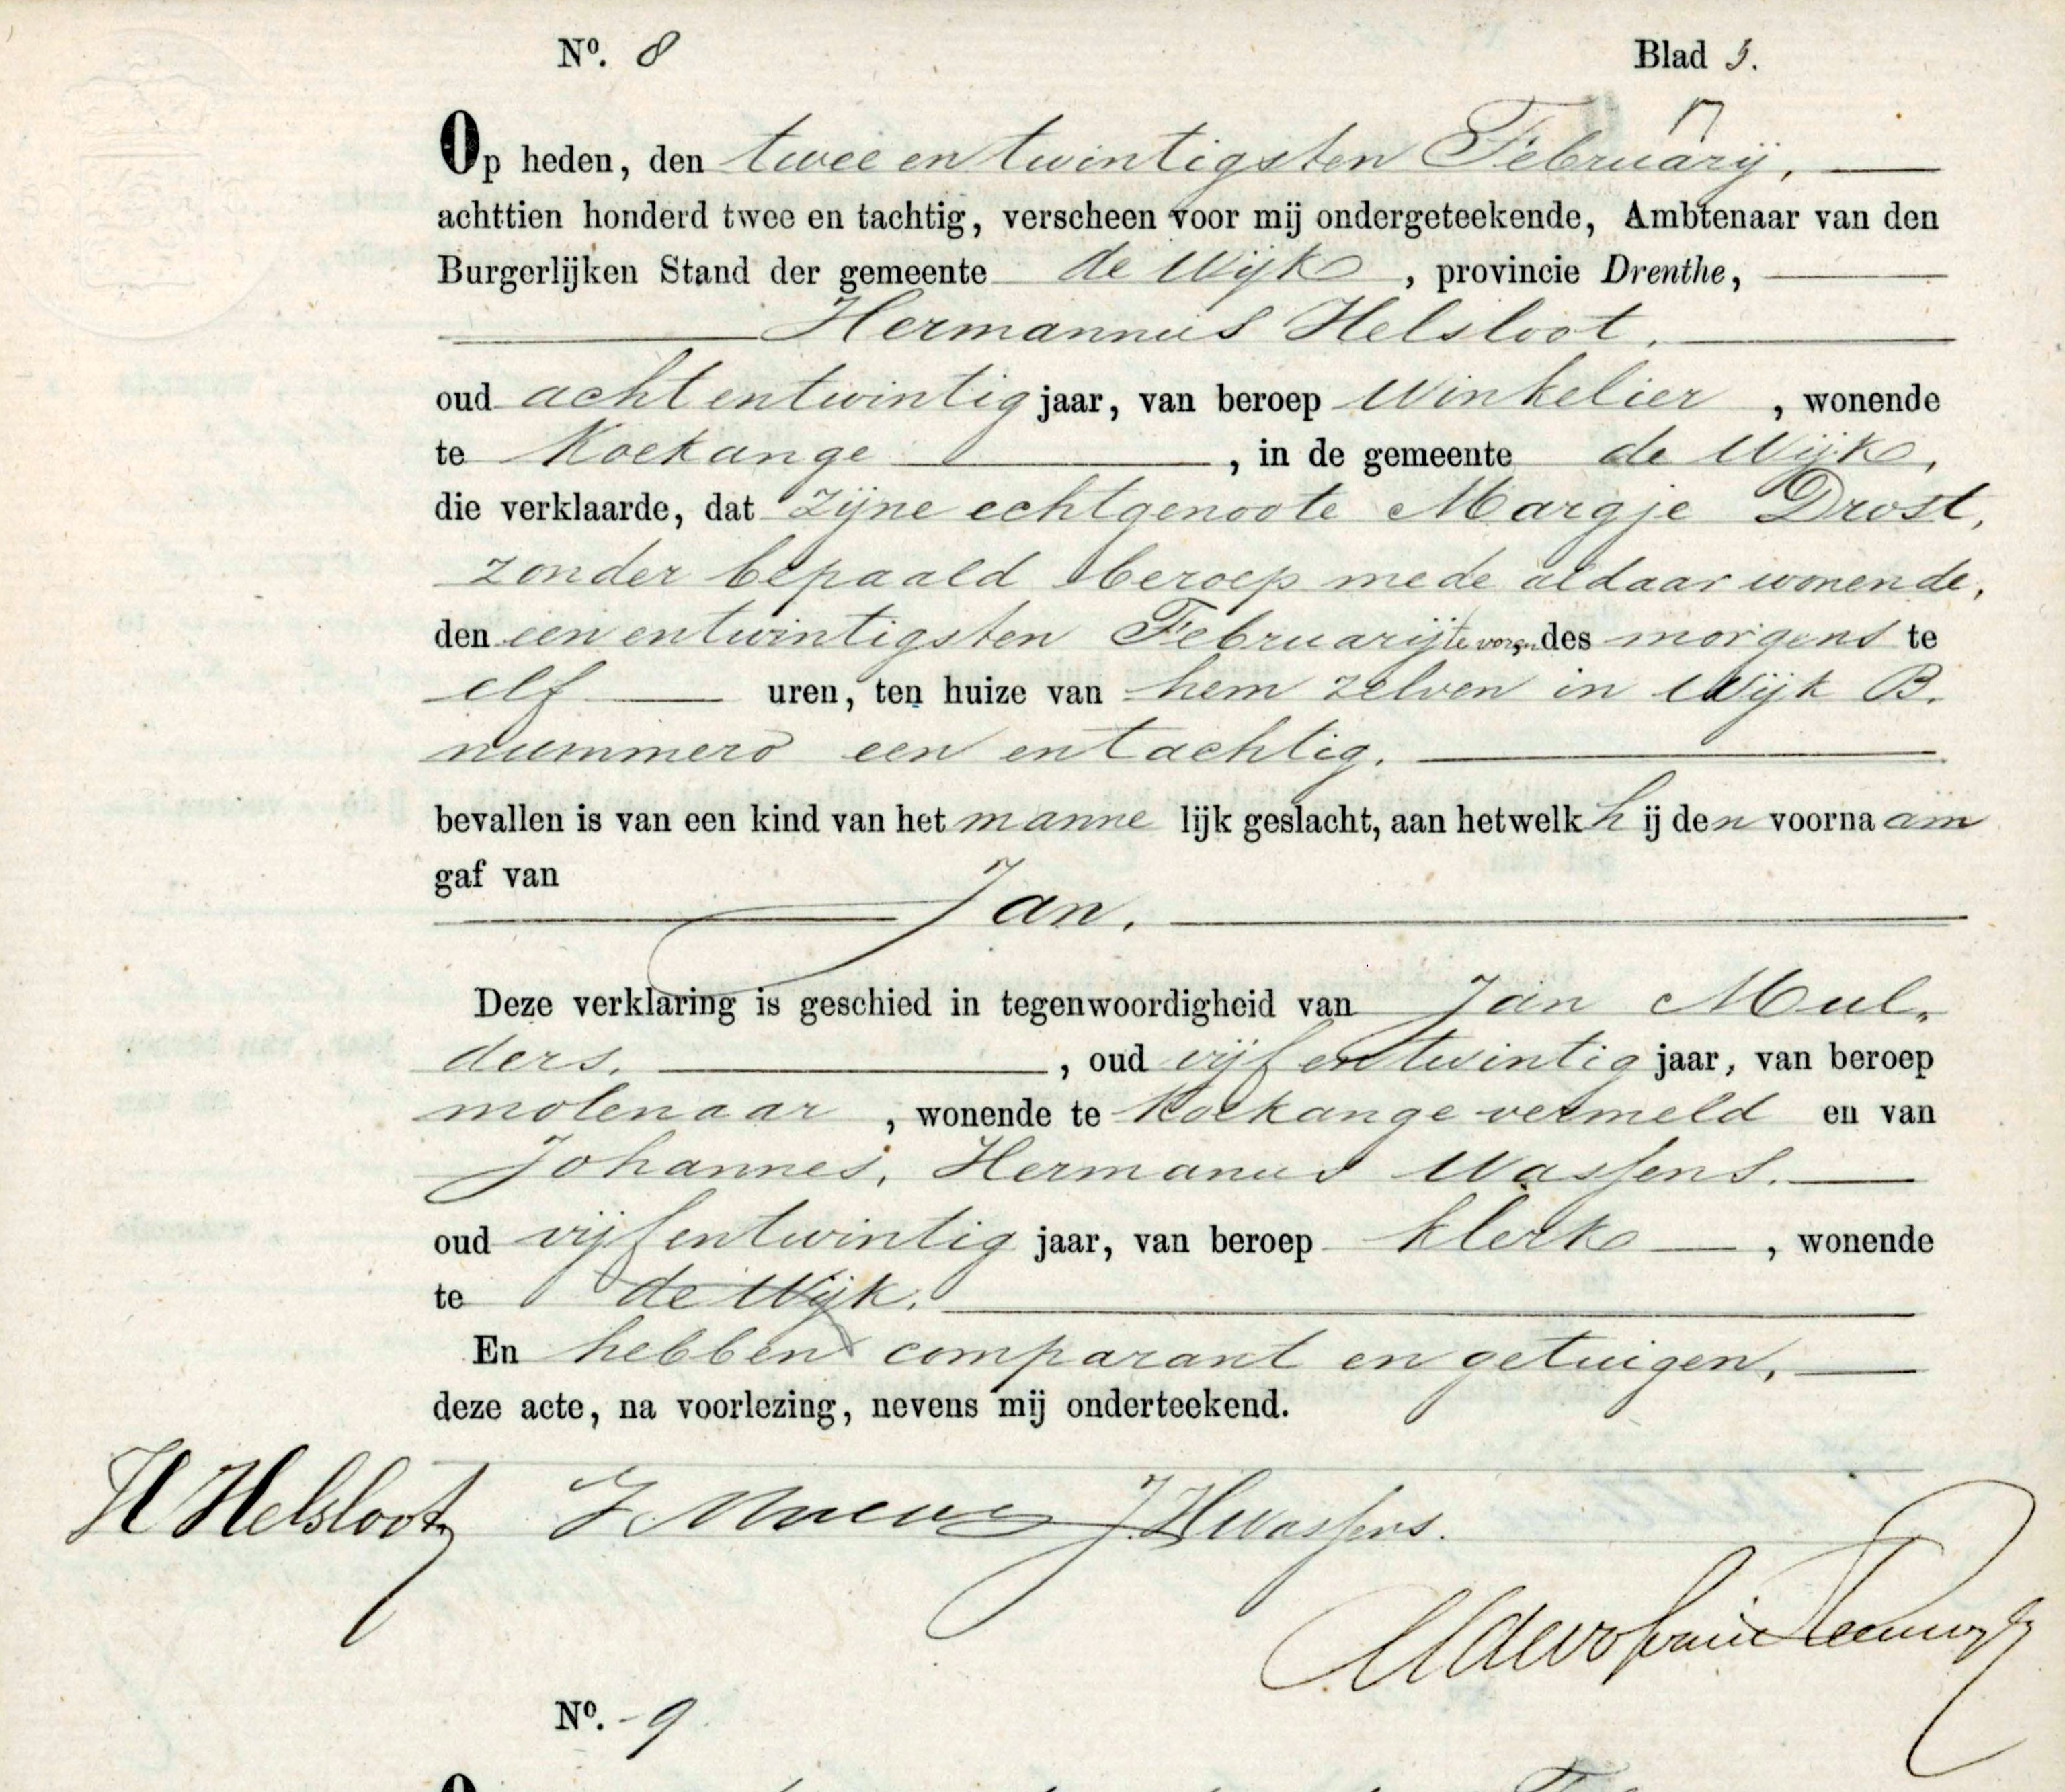 Nº. 8 Blad 3.
Op heden, den twee en twintigsten Februarij,
achttien honderd twee en tachtig, verscheen voor mij ondergeteekende, Ambtenaar van den
Burgerlijken Stand der gemeente de Wijk, provincie Drenthe,
Hermannus Helsloot.
oud acht en twintig jaar, van beroep Winkelier, wonende
te Koekange, in de gemeente de Wijk,
die verklaarde, dat zijne echtgenoote Margje Drost,
zonder bepaald beroep mede aldaar wonende,
den een en twintigsten Februarij te vor. des morgens te
elf uren, ten huize van hem zelven in Wijk B.
nummero een en tachtig.
bevallen is van een kind van het mannelijk geslacht, aan hetwelk hij den voornaam
gaf van
Jan.
Deze verklaring is geschied in tegenwoordigheid van Jan Mul-
ders., oud vijf en twintig jaar, van beroep
molenaar, wonende te Koekange vermeld en van
Johannes, Hermanus Wassens.
oud vijf en twintig jaar, van beroep klerk, wonende
te de Wijk.
En hebben comparant en getuigen,
deze acte, na voorlezing, nevens mij onderteekend.
H Helsloot J. Mulders J H Wassens.
Nº. 9